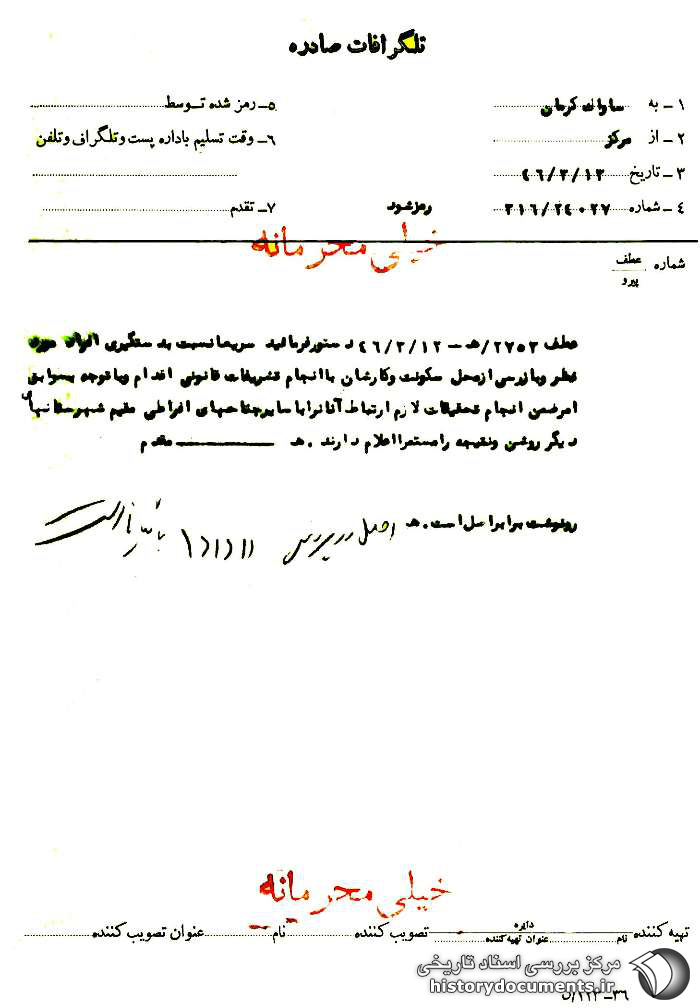 تلگرافات صادره
۱ـ به ساواک کرمان
۵ـ رمز شده توسط
۲ـ از مرکز
۶ـ وقت تسلیم باداره پست وتلگراف وتلفن
۳ـ تاریخ ۴۶/۲/۱۳
۴ـ شماره ۳۱۶/۲۴۰۲۷
رمز شود
۷ـ تقدم
خیلی محرمانه
شماره عطف
پیرو
عطف ۲۷۵۲/هـ – ۴۶/۲/۱۲ دستورفرمائید سریعا نسبت بدستگیری افراد مورد
نظر وبازرسی ازمحل سکونت وکارشان باانجام تشریفات قانونی اقدام وباتوجه بسوابق
امرضمن انجام تحقیقات لازم ارتباط آنانرابا سایرجناحهای افراطی مقیم شهرستانهای
دیگر روشن ونتیجه رامستمرااعلام دارند . هـ مقدم
رونوشت برابراصل است . هـ
اصل در پرونده
خیلی محرمانه
تهیه کننده دایره
نام عنوان تهیه کننده تصویب کننده نام عنوان تصویب کننده
مرکز بررسی اسناد تاریخی
historydocuments.ir